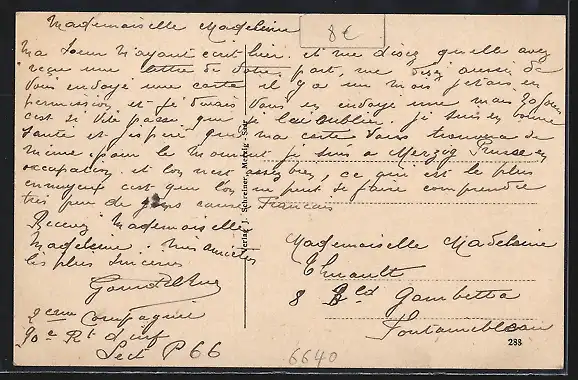 Mademoiselle Madeleine
8€
Ma Soeur m'ayant écrit hier et me disez qu'elle avez
reçue une lettre de votre part, me disez aussi de
vous envoyé une carte il y a un mois j'étais en
permission et je devais vous en envoyé une mais 20 jours
c'est si vite passé que je l'ai oublier. je suis en bonne
santé et j'espère que ma carte vous trouvera de
même pour le moment je suis a Merzig Prusse en
occupation et l'on est assez bien, ce qui est le plus
ennuyeux c'est que l'on ne peut se faire comprendre
très peu de gens cause Francais
Recevez Mademoiselle
Madeleine mes amitiés
les plus sincères
2eme Compagnie
90e Rt d'inf
Sect P 66
Verlag J. Schreiner, Merzig - Saar
Mademoiselle Madeleine
Thuault
8 Bld Gambetta
Fontainebleau
288
6640